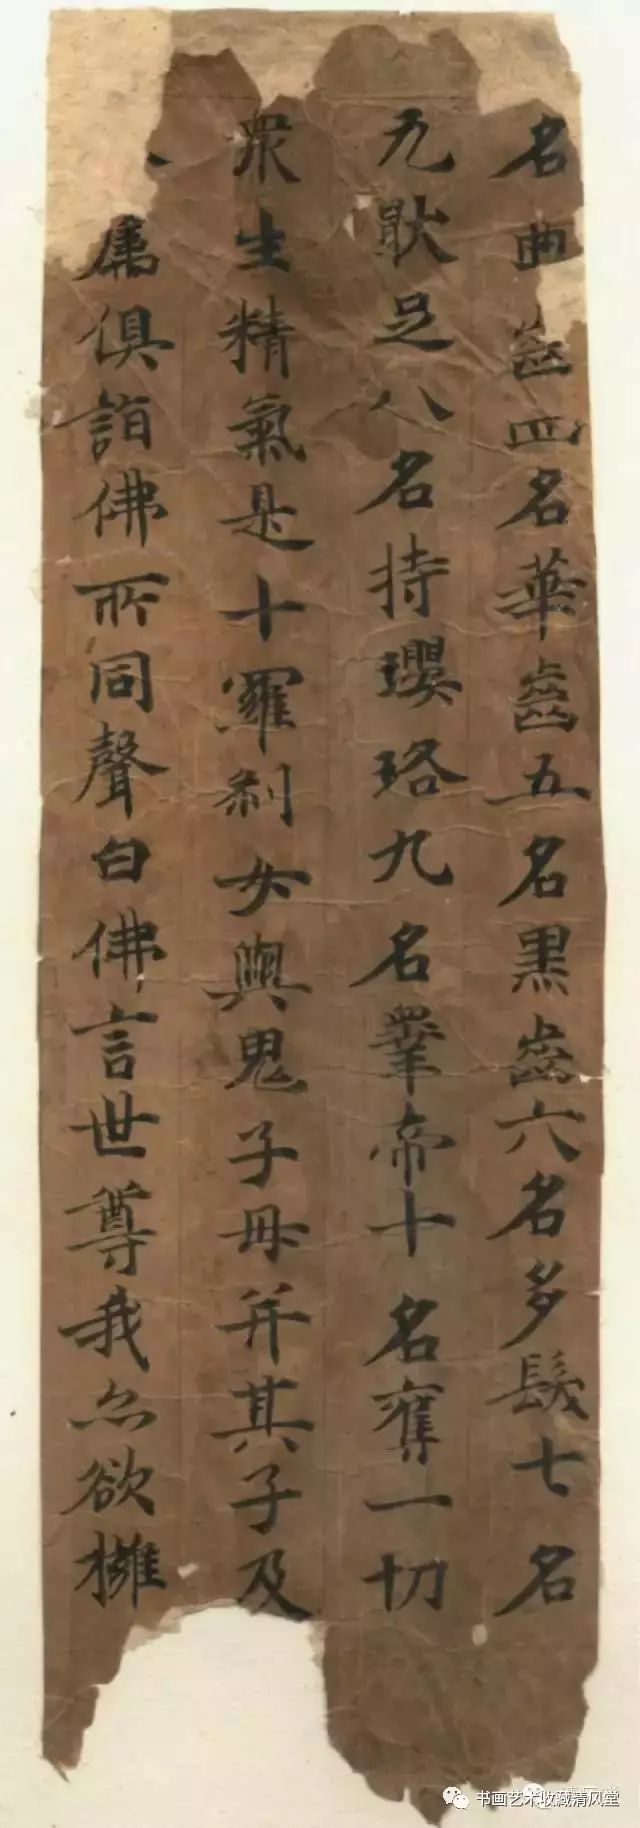 名曲齒四名華齒五名黑齒六名多髮七名
无猒足八名持瓔珞九名睾帝十名奪一切
眾生精氣是十羅剎女與鬼子母并其子及
属俱詣佛所同聲白佛言世尊我亦欲擁
书画艺术收藏清风堂